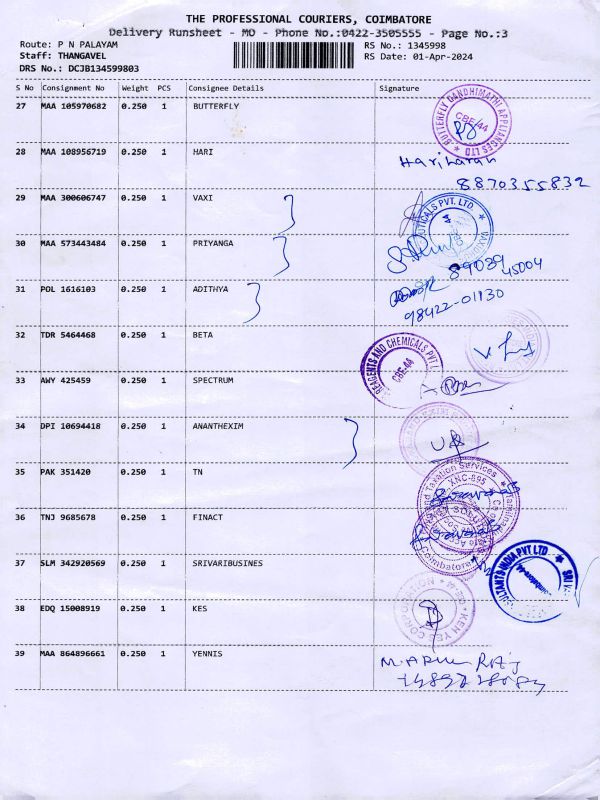 THE PROFESSIONAL COURIERS, COIMBATORE
Delivery Runsheet - MO - Phone No.:0422-3505555 - Page No.:3
Route: P N PALAYAM
RS No.: 1345998
Staff: THANGAVEL
RS Date: 01-Apr-2024
DRS No.: DCJB134599803
S No Consignment No Weight PCS Consignee Details Signature
27 MAA 105970682 0.250 1 BUTTERFLY
BUTTERFLY GANDHIMATHI APPLIANCES LTD
CBE/44
28 MAA 108956719 0.250 1 HARI
Hariharan
8870355832
29 MAA 300606747 0.250 1 VAXI
30 MAA 573443484 0.250 1 PRIYANGA
89039
45004
31 POL 1616103 0.250 1 ADITHYA
98422-01130
32 TDR 5464468 0.250 1 BETA
REAGENTS AND CHEMICALS PVT
CBE-44
33 AWY 425459 0.250 1 SPECTRUM
34 DPI 10694418 0.250 1 ANANTHEXIM
35 PAK 351420 0.250 1 TN
and Taxation Services
XNC-895
36 TNJ 9685678 0.250 1 FINACT
Coimbatore
37 SLM 342920569 0.250 1 SRIVARIBUSINES
SULTANTS INDIA PVT LTD
38 EDQ 15008919 0.250 1 KES
CORPORATION
39 MAA 864896661 0.250 1 YENNIS